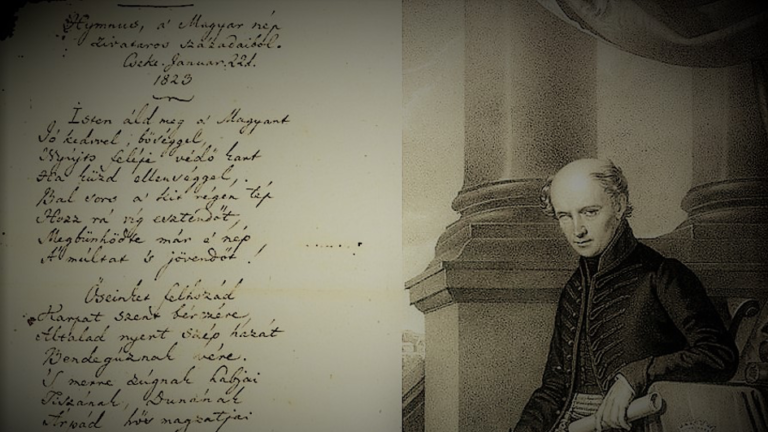 Hymnus, a' Magyar nép
zivataros századaiból.
Cseke. Január. 22d.
1823
Isten áld meg a' Magyart
Jó kedvvel, bőséggel,
Nyújts feléje védő kart
Ha küzd ellenséggel,
Bal sors a' kit régen tép
Hozz rá víg esztendőt,
Megbűnhődte már e' nép
A' múltat 's jövendőt!
Őseinket felhozád
Kárpát szent bérczére,
Általad nyert szép hazát
Bendegúznak vére.
'S merre zúgnak habjai
Tiszának, Dunának
Árpád hős magzatjai